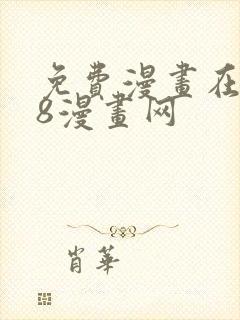 免費漫畫在
8漫畫网
肖華